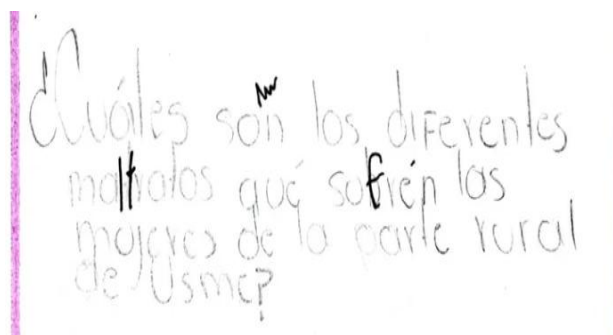 ¿Cuáles son los diferentes
maltratos qué sufrén las
mujeres de la parte rural
de Usme?